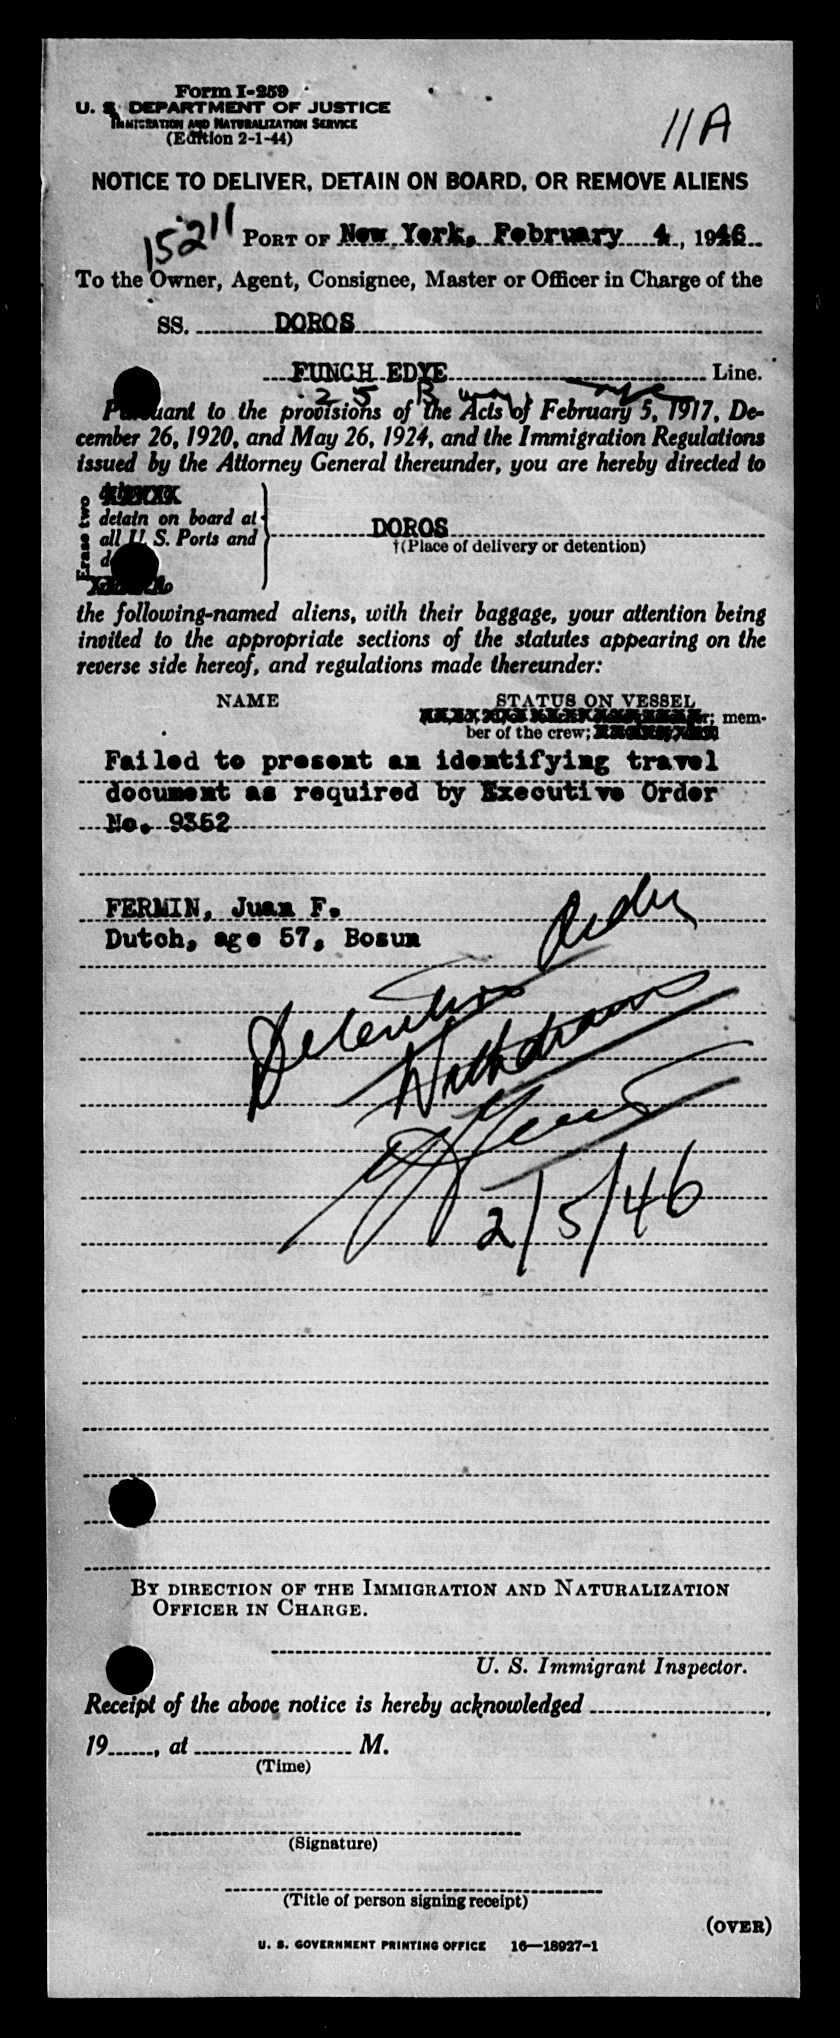 Form I-259
U. S. DEPARTMENT OF JUSTICE
IMMIGRATION AND NATURALIZATION SERVICE
(Edition 2-1-44)
11A
NOTICE TO DELIVER, DETAIN ON BOARD, OR REMOVE ALIENS
15211
PORT OF New York, February 4, 1946
To the Owner, Agent, Consignee, Master or Officer in Charge of the
SS. DOROS
FUNCH EDYE Line.
25 B'way
Pursuant to the provisions of the Acts of February 5, 1917, De-
cember 26, 1920, and May 26, 1924, and the Immigration Regulations
issued by the Attorney General thereunder, you are hereby directed to
Erase two
detain on board at
all U. S. Ports and
DOROS
†(Place of delivery or detention)
the following-named aliens, with their baggage, your attention being
invited to the appropriate sections of the statutes appearing on the
reverse side hereof, and regulations made thereunder:
NAME STATUS ON VESSEL
mem-
ber of the crew;
Failed to present an identifying travel
document as required by Executive Order
No. 9352
FERMIN, Juan F.
Dutch, age 57, Bosun
Detention Order
Withdrawn
2/5/46
BY DIRECTION OF THE IMMIGRATION AND NATURALIZATION
OFFICER IN CHARGE.
U. S. Immigrant Inspector.
Receipt of the above notice is hereby acknowledged
19......, at M.
(Time)
(Signature)
(Title of person signing receipt)
(OVER)
U. S. GOVERNMENT PRINTING OFFICE 16—18927-1